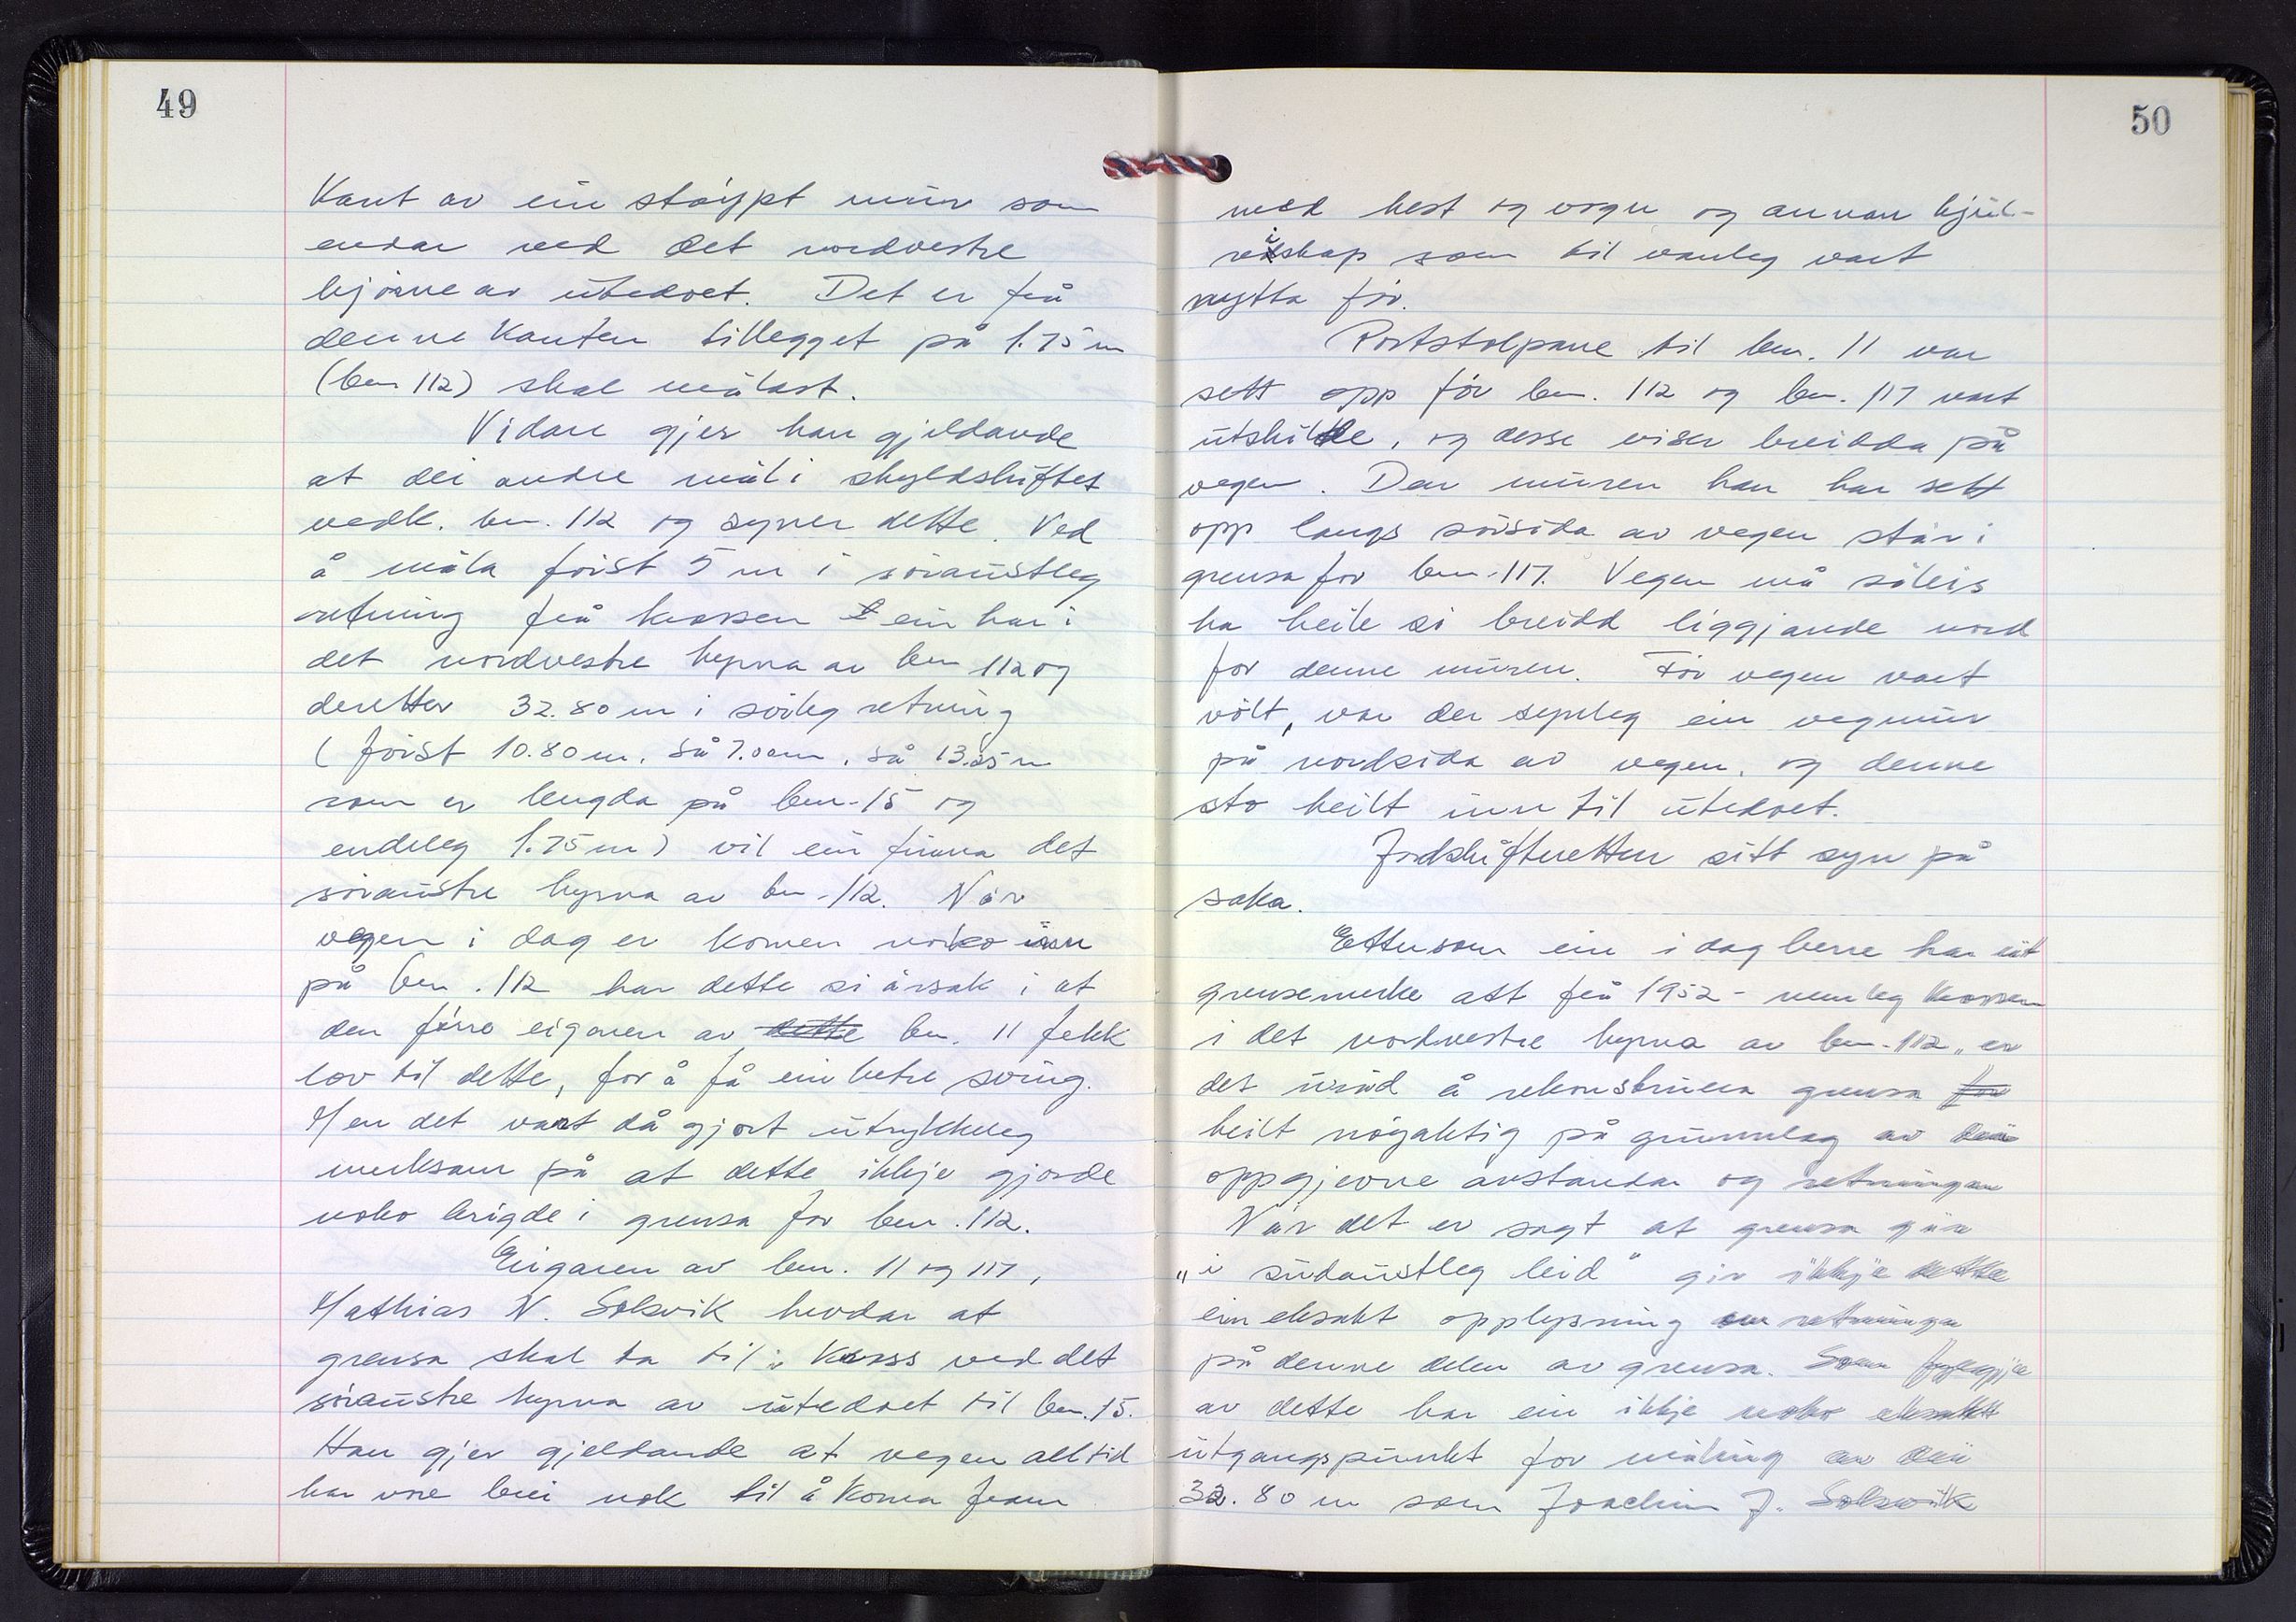 49
Kant av ein støypt mur som
endar ved det nordvestre
hjørne av utedoet. Det er frå
denne kanten tillegget på 1.75 m
(bnr 112) skal målast.
Vidare gjer han gjeldande
at dei andre mål i skyldskiftet
vedk. bnr. 112 og syner dette. Ved
å måla først 5 m i søraustleg
retning frå krossen ein har i
det nordvestre hyrna av bnr 112 og
deretter 32.80 m i sørleg retning
(først 10.80 m, så 7.00 m, så 13.25 m
som er lengda på bnr. 15 og
endeleg 1.75 m) vil ein finna det
søraustre hyrna av bnr. 112. Når
vegen i dag er komen noko inn
på bnr. 112 har dette si årsak i at
den førre eigaren av dette bnr. 11 fekk
lov til dette, for å få ein betre sving.
Men det vart då gjort utrykkeleg
merksam på at dette ikkje gjorde
noko brigde i grensa for bnr. 112.
Eigaren av bnr. 11 og 117,
Mathias N. Solsvik hevdar at
grensa skal ta til i kross ved det
søraustre hyrna av utedoet til bnr. 15.
Han gjer gjeldande at vegen alltid
har vore brei nok til å koma fram
50
med hest og vogn og annan hjul-
reiskap som til vanleg vart
nytta før.
Portstolpane til bnr. 11 var
sett opp før bnr. 112 og bnr. 117 vart
utskilde, og desse viser breidda på
vegen. Den muren han har sett
opp langs sørsida av vegen står i
grensa for bnr. 117. Vegen må såleis
ha heile si breidd liggjande nord
for denne muren. Før vegen vart
vølt, var der synleg ein vegmur
på nordsida av vegen, og denne
sto heilt inn til utedoet.
Jordskifteretten sitt syn på
saka.
Ettersom ein i dag berre har eit
grensemerke att frå 1952 - nemleg krossen
i det nordvestre hyrna av bnr. 112, er
det uråd å rekonstruera grensa for
heilt nøyaktig på grunnlag av dei
oppgjevne avstandar og retningar
Når det er sagt at grensa går
"i sudaustleg leid" gir ikkje dette
ein eksakt opplysning om retninga
på denne delen av grensa. Som fylgje
av dette har ein ikkje noko eksakt
utgangspunkt for måling av dei
32.80 m som Joachim J. Solsvik